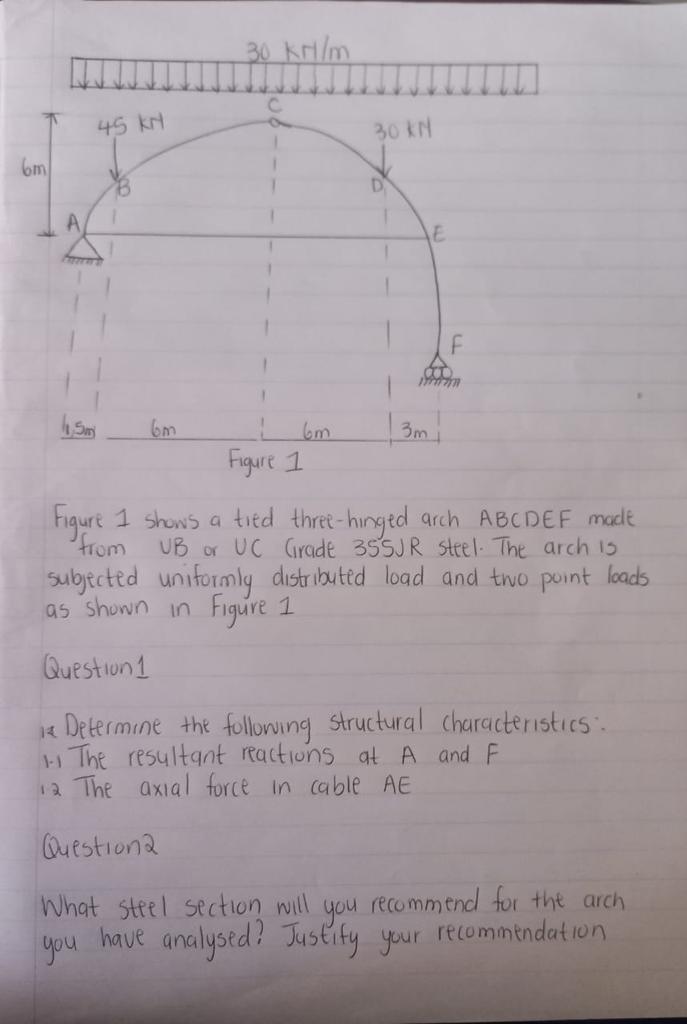 30 KN/m
C
45 KN
30 KN
6m
B
D
A
E
F
1,5m
6m
6m
3m
Figure 1
Figure 1 shows a tied three-hinged arch ABCDEF made
from UB or UC Grade 355JR steel. The arch is
subjected uniformly distributed load and two point loads
as shown in Figure 1
Question1
Determine the following structural characteristics:
1.1 The resultant reactions at A and F
1.2 The axial force in cable AE
Question2
What steel section will you recommend for the arch
you have analysed? Justify your recommendation